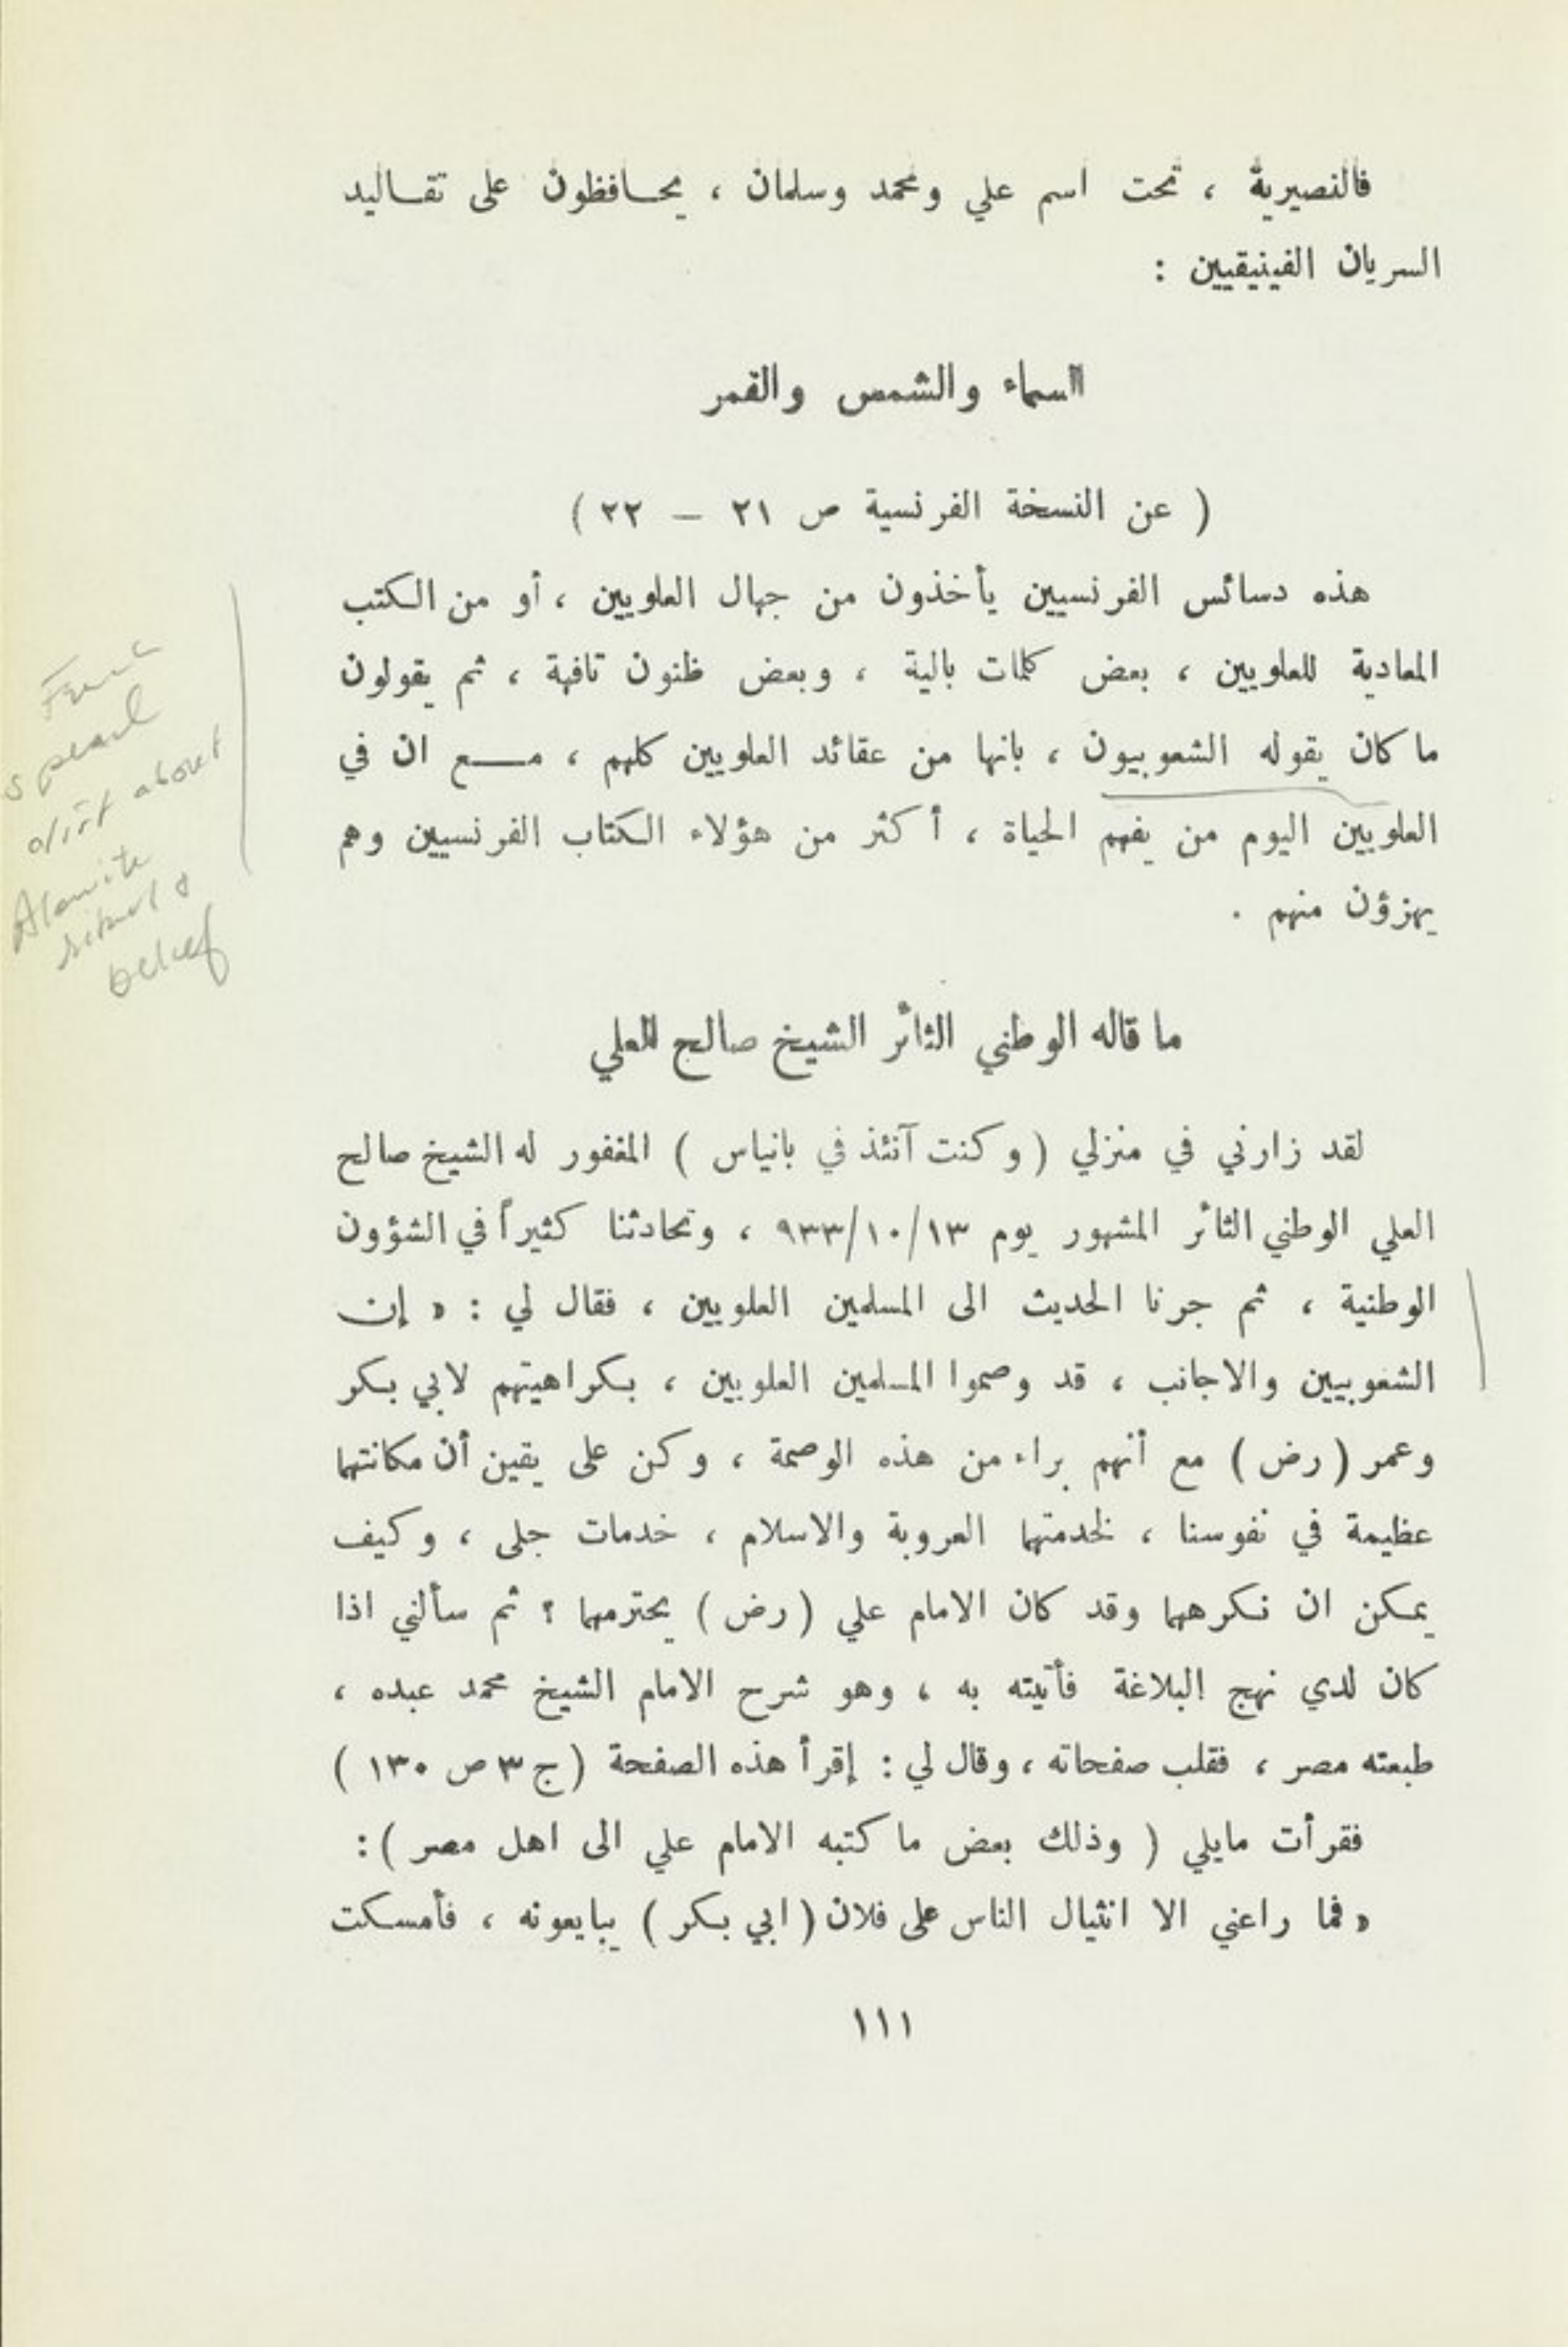 فالنصيرية ، تحت اسم علي ومحمد وسلمان ، يحـافظون على تقـاليد
السريان الفينيقيين :
السماء والشمس والقمر
( عن النسخة الفرنسية ص ٢١ – ٢٢ )
هذه دسائس الفرنسيين يأخذون من جهال العلويين ، أو من الكتب
المعادية للعلويين ، بعض كلمات بالية ، وبعض ظنون تافهة ، ثم يقولون
ما كان يقوله الشعوبيون ، بانها من عقائد العلويين كلهم ، مـــع ان في
العلويين اليوم من يفهم الحياة ، أكثر من هؤلاء الكتاب الفرنسيين وهم
يهزؤن منهم .
spread
dirt about
Alawite
ritual &
belief
ما قاله الوطني الثائر الشيخ صالح العلي
لقد زارني في منزلي ( وكنت آنئذ في بانياس ) المغفور له الشيخ صالح
العلي الوطني الثائر المشهور يوم ٩٣٣/١٠/١٣ ، وتحادثنا كثيراً في الشؤون
الوطنية ، ثم جرنا الحديث الى المسلمين العلويين ، فقال لي : « إن
الشعوبيين والاجانب ، قد وصموا المسلمين العلويين ، بكراهيتهم لابي بكر
وعمر ( رض ) مع أنهم براء من هذه الوصمة ، وكن على يقين أن مكانتهما
عظيمة في نفوسنا ، لخدمتهما العروبة والاسلام ، خدمات جلى ، وكيف
يمكن ان نكرههما وقد كان الامام علي ( رض ) يحترمهما ؟ ثم سألني اذا
كان لدي نهج البلاغة فأتيته به ، وهو شرح الامام الشيخ محمد عبده ،
طبعته مصر ، فقلب صفحاته ، وقال لي : إقرأ هذه الصفحة ( ج ٣ ص ١٣٠ )
فقرأت مايلي ( وذلك بعض ما كتبه الامام علي الى اهل مصر ) :
« فما راعني الا انثيال الناس على فلان ( ابي بكر ) يبايعونه ، فأمسكت
١١١